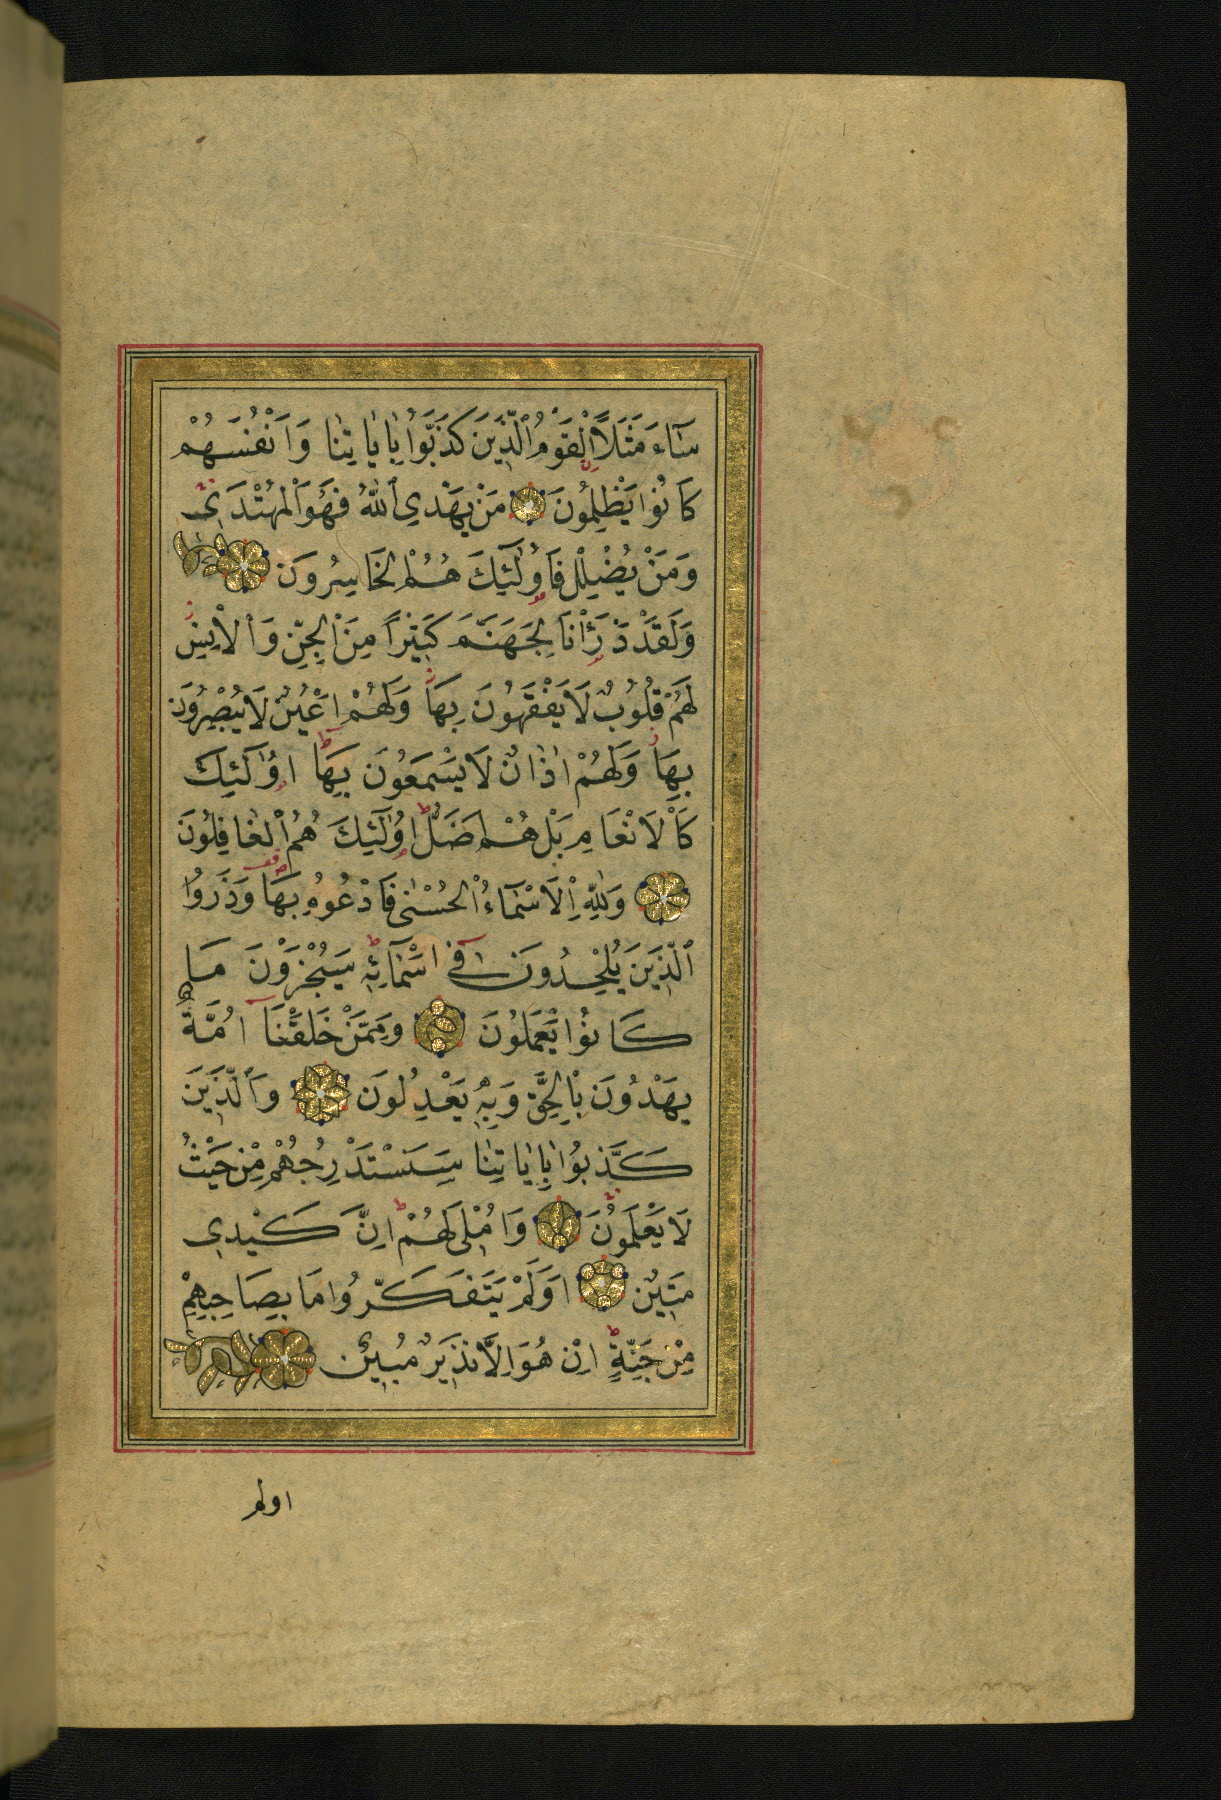 سَآءَ مَثَلًا ۨالْقَوْمُ الَّذِينَ كَذَّبُوا بِاٰيَاتِنَا وَاَنْفُسَهُمْ
كَانُوا يَظْلِمُونَ مَنْ يَهْدِي اللّٰهُ فَهُوَ الْمُهْتَدِي
وَمَنْ يُضْلِلْ فَاُولٰٓئِكَ هُمُ الْخَاسِرُونَ
وَلَقَدْ ذَرَأْنَا لِجَهَنَّمَ كَثِيرًا مِنَ الْجِنِّ وَالْاِنْسِ
لَهُمْ قُلُوبٌ لَا يَفْقَهُونَ بِهَا وَلَهُمْ اَعْيُنٌ لَا يُبْصِرُونَ
بِهَا وَلَهُمْ اٰذَانٌ لَا يَسْمَعُونَ بِهَا اُولٰٓئِكَ
كَالْاَنْعَامِ بَلْ هُمْ اَضَلُّ اُولٰٓئِكَ هُمُ الْغَافِلُونَ
وَلِلّٰهِ الْاَسْمَآءُ الْحُسْنٰى فَادْعُوهُ بِهَا وَذَرُوا
الَّذِينَ يُلْحِدُونَ فِي اَسْمَآئِهِ سَيُجْزَوْنَ مَا
كَانُوا يَعْمَلُونَ وَمِمَّنْ خَلَقْنَآ اُمَّةٌ
يَهْدُونَ بِالْحَقِّ وَبِهِ يَعْدِلُونَ وَالَّذِينَ
كَذَّبُوا بِاٰيَاتِنَا سَنَسْتَدْرِجُهُمْ مِنْ حَيْثُ
لَا يَعْلَمُونَ وَاُمْلِي لَهُمْ اِنَّ كَيْدِي
مَتِينٌ اَوَلَمْ يَتَفَكَّرُوا مَا بِصَاحِبِهِمْ
مِنْ جِنَّةٍ اِنْ هُوَ اِلَّا نَذِيرٌ مُبِينٌ
اولم